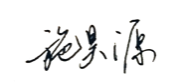 施昊源